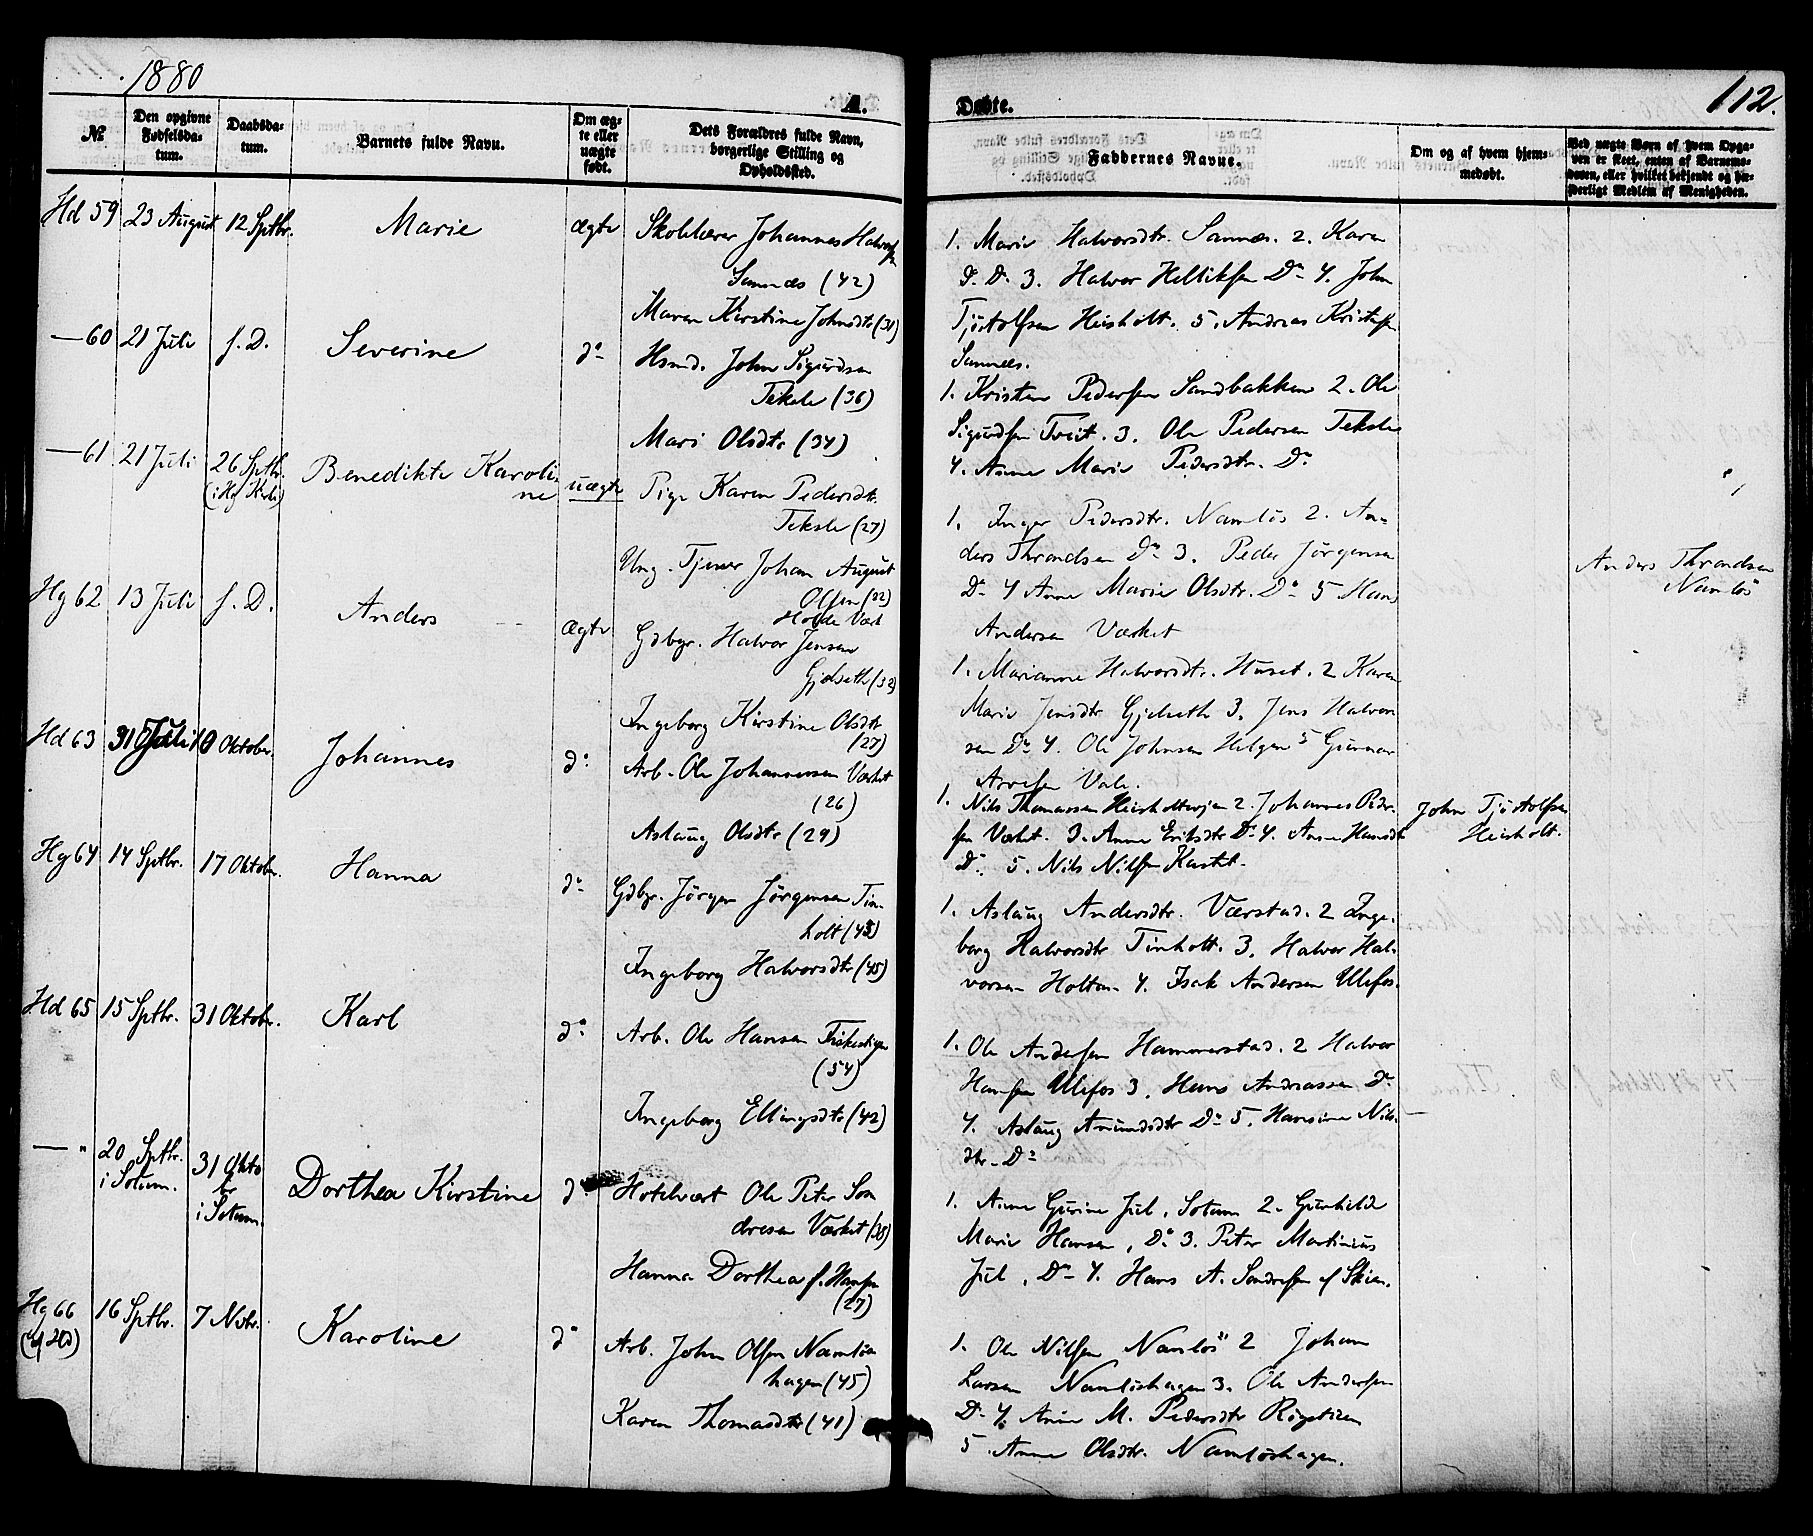 1880
A.
Døbte.
112.
№
Den opgivne Fødselsdatum.
Daabsdatum.
Barnets fulde Navn.
Om ægte eller uægte født.
Dets Forældres fulde Navn, borgerlige Stilling og Opholdssted.
Faddernes Navne.
Om og af hvem hjemmedøbt.
Ved uægte Børn af hvem Opgaven er skeet, enten af Barnemoderen, eller hvilket bekjendt og hæderligt Medlem af Menigheden.
Hd 59 23 August 12 Sptbr. Marie ægte Skolelærer Johannes Halvorsen
Sannæs (42)
Maren Kirstine Johnsdtr (31)
1. Marie Halvorsdtr. Sannæs. 2. Karen
D. Do 3. Halvor Helliksen Do 4. John
Tjostolfsen Heisholt. 5. Andreas Kristensen
Sannæs.
— 60 21 Juli s. D. Severine do Hsmd. John Sigurdsen
Teksle (36)
Mari Olsdtr (34)
1. Kristen Pedersen Sandbakken 2. Ole
Sigurdsen Tveit. 3. Ole Pedersen Teksle
4. Anne Marie Pedersdtr. Do
— 61 21 Juli 26 Sptbr. (i Hg Kirke) Benedikte Karoline uægte Pige Karen Pedersdtr.
Teksle (27)
Ung. Tjener Johan August
Olsen (22)
Holden Værk
1. Inger Pedersdtr. Namløs 2. An-
ders Throndsen Do 3. Peder Jørgensen
Do 4 Anne Marie Olsdtr. Do 5 Hans
Andersen Værket
Anders Throndsen
Namløs
Hg 62 13 Juli s. D. Anders ægte Gdbgr. Halvor Jensen
Gjelseth (32)
Ingeborg Kirstine Olsdtr
(27)
1. Marianne Halvorsdtr. Huset. 2 Karen
Marie Jensdtr Gjelseth 3. Jens Halvor
sen Do 4. Ole Johnsen Helgen 5 Gunnar
Arvesen Vale.
Hd 63 31 Juli 10 Oktober. Johannes do Arb. Ole Johannesen Værket
(26)
Aslaug Olsdtr (29)
1. Nils Thomassen Heisholtveien 2. Johannes Peder-
sen Værket. 3. Anne Eriksdtr Do 4. Anne Hansdtr
Do. 5. Nils Nilsen Kastet.
John Tjostolfsen
Heisholt.
Hg 64 14 Sptbr. 17 Oktober. Hanna do Gdbgr. Jørgen Jørgensen Tin-
holt (43)
Ingeborg Halvorsdtr (45)
1. Aslaug Andersdtr. Værstad. 2 Inge-
borg Halvorsdtr Tinholt. 3. Halvor Hal-
vorsen Holtan. 4. Isak Andersen Ulefos.
Hd 65 15 Sptbr. 31 Oktobr. Karl do Arb. Ole Hansen Fiskestigen
(54)
Ingeborg Ellingsdtr (42)
1. Ole Andersen Hammerstad. 2 Halvor
Hansen Ulefos 3. Hans Andreassen Do
4. Aslaug Amundsdtr Do 5. Hansine Nils-
dtr. Do
— " 20 Sptbr. i Solum. 31 Oktober i Solum. Dorthea Kirstine do Hotelvært Ole Peter Son
dresen Værket (38)
Hanna Dorthea f. Hansen
(27)
1. Anne Gurine Jul. Solum 2. Gunhilde
Marie Hansen, Do 3. Peter Martinius
Jul, Do 4. Hans A. Sondresen af Skien.
Hg 66 16 Sptbr. 7 Nvbr. Karoline do Arb. John Olsen Namløs
hagen (45)
Karen Thomasdtr (41)
1. Ole Nilsen Namløs 2 Johan
Larsen Namløshagen 3. Ole Andersen
Do 4. Anne M. Pedersdtr
5. Anne Olsdtr. Namløshagen.